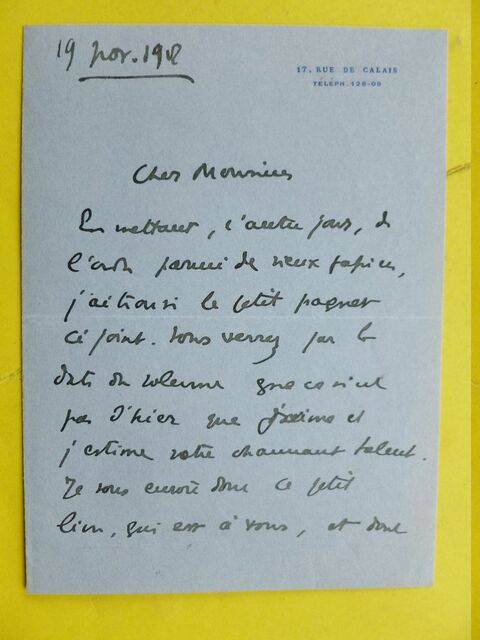 19 nov. 1912
17, RUE DE CALAIS
TÉLÉPH. 128-09
Cher Monsieur
En mettant, l'autre jour, de
l'ordre parmi de vieux papiers,
j'ai trouvé le petit paquet
ci joint. Vous verrez par la
date du volume que ce n'est
pas d'hier que j'aime et
j'estime votre charmant talent.
Je vous envoie donc ce petit
livre, qui est à vous, et dont